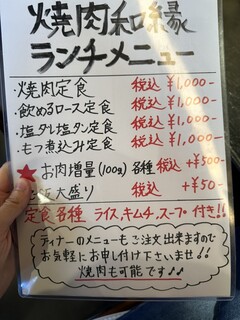 焼肉和縁
ランチメニュー
・焼肉定食 税込 ¥1,000-
・飲めるロース定食 税込 ¥1,000-
・塩タレ塩タン定食 税込 ¥1,000-
・もつ煮込み定食 税込 ¥1,000-
★お肉増量(100g)各種 税込 +¥500-
大盛り 税込 +¥50-
定食各種 ライス、キムチ、スープ付き!!
ディナーのメニューもご注文出来ますので
お気軽にお申し付け下さいませ!!
焼肉も可能です♪♪